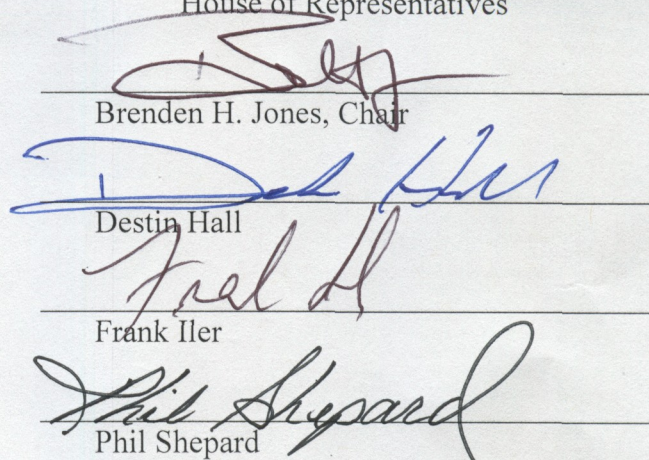 House of Representatives
Brenden H. Jones, Chair
Destin Hall
Frank Iler
Phil Shepard
Phil Shepard